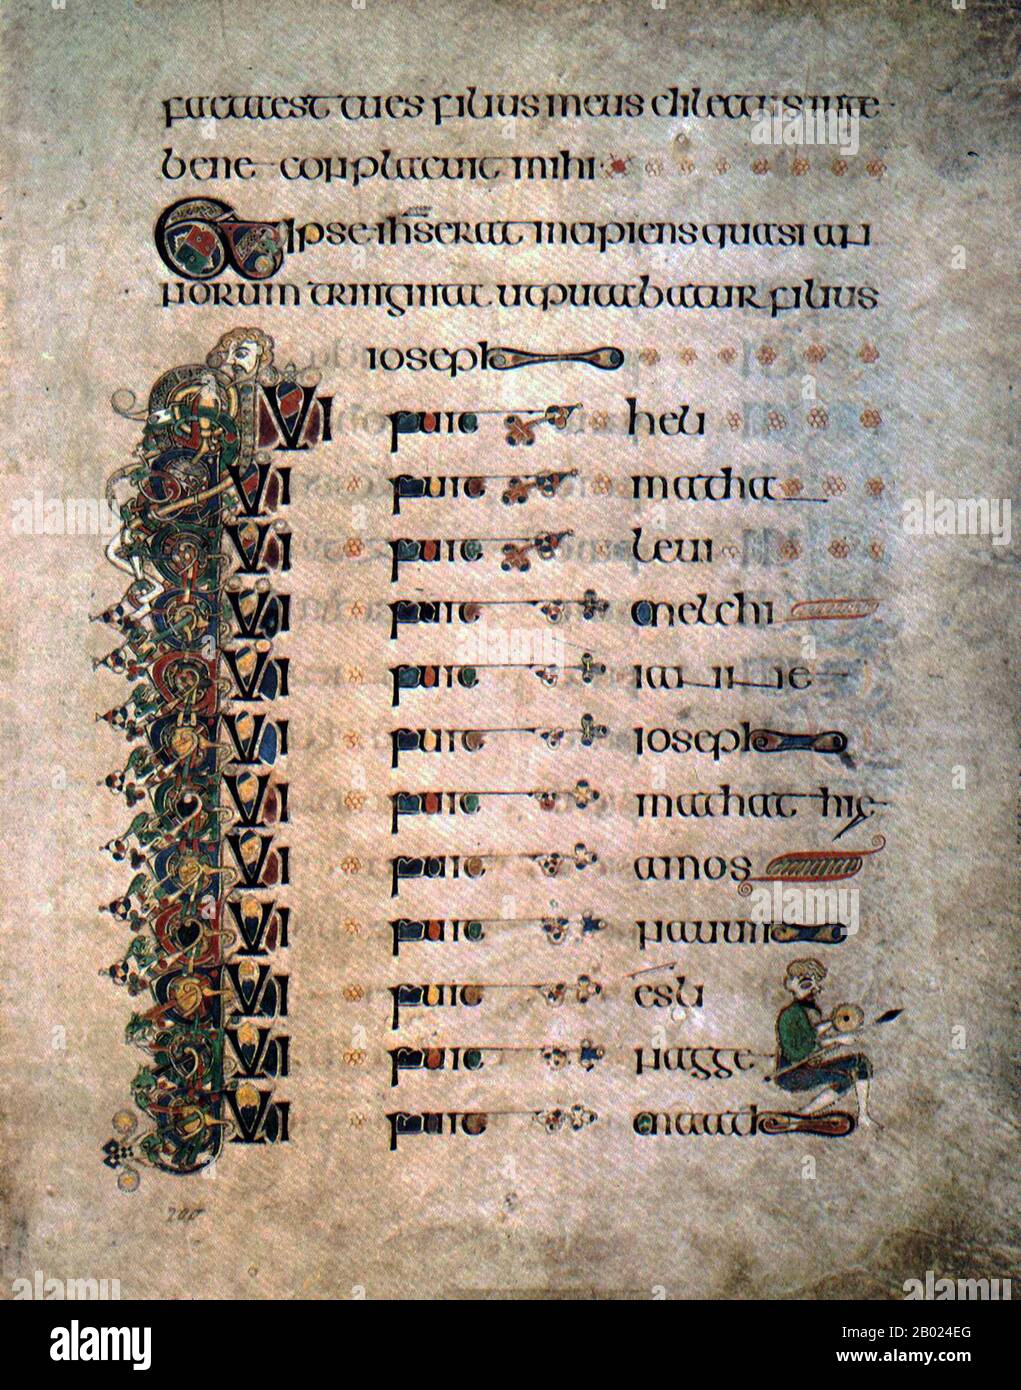 facta est tu es filius meus dilectus in te
bene conplacuit mihi
Et ipse ihs erat incipiens quasi an
norum triginta ut putabatur filius
ioseph
QUI fuit heli
QUI fuit matha
QUI fuit levi
QUI fuit melchi
QUI fuit iannae
QUI fuit ioseph
QUI fuit mathathie
QUI fuit amos
QUI fuit nauum
QUI fuit esli
QUI fuit nagge
QUI fuit maath
200
alamy
Image ID: 2B024EG
www.alamy.com